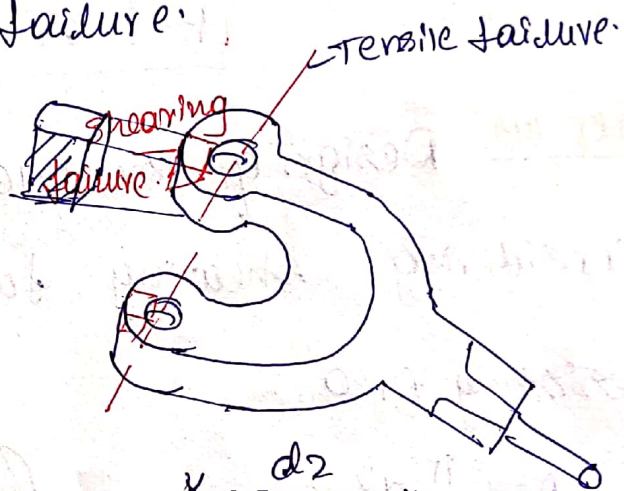 failure.
Tensile failure.
shearing
failure.
d2